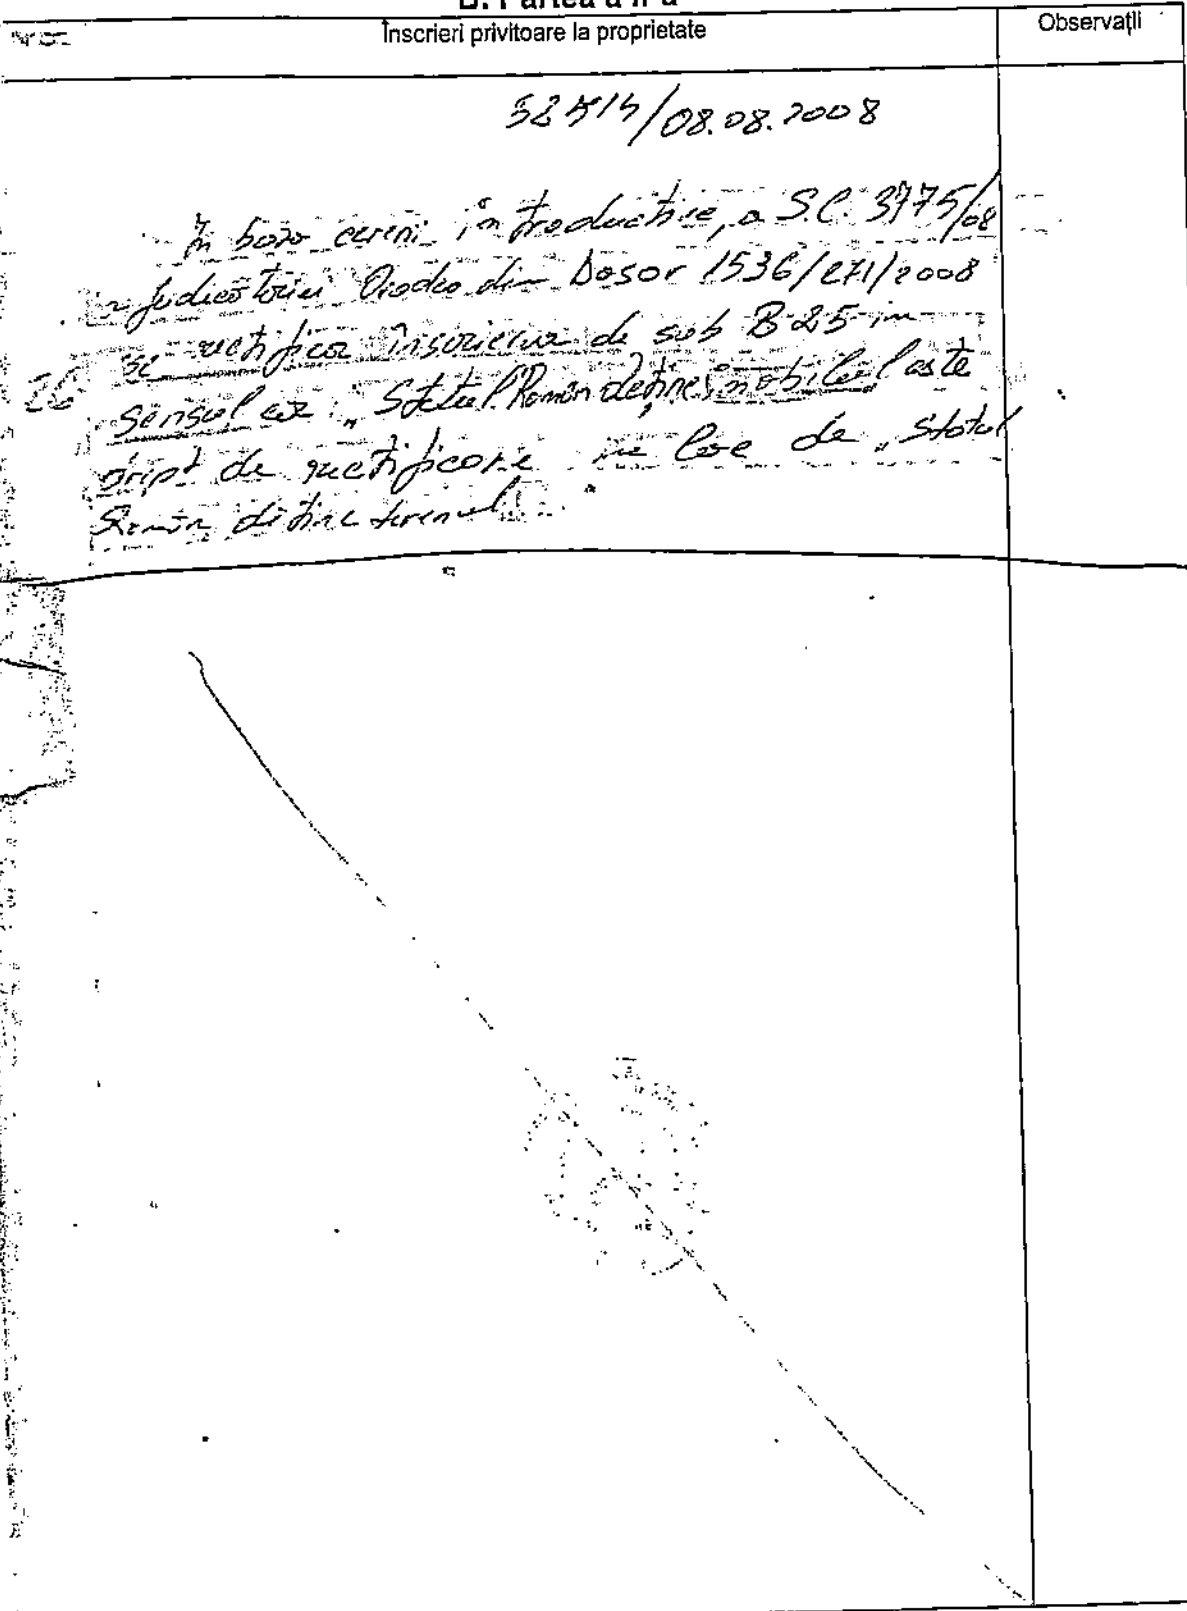 B. Partea a II-a
Înscrieri privitoare la proprietate
Observații
52515/08.08.2008
În baza cererii introductive, a S.C. 3775/08
a Judecătoriei Oradea din Dosar 1536/271/2008
se rectifica înscrierea de sub B 25 in
26 sensul ca: „Statul Român deține imobilul aste
dript de rectificare in loc de „Statul
Român deține terenul"